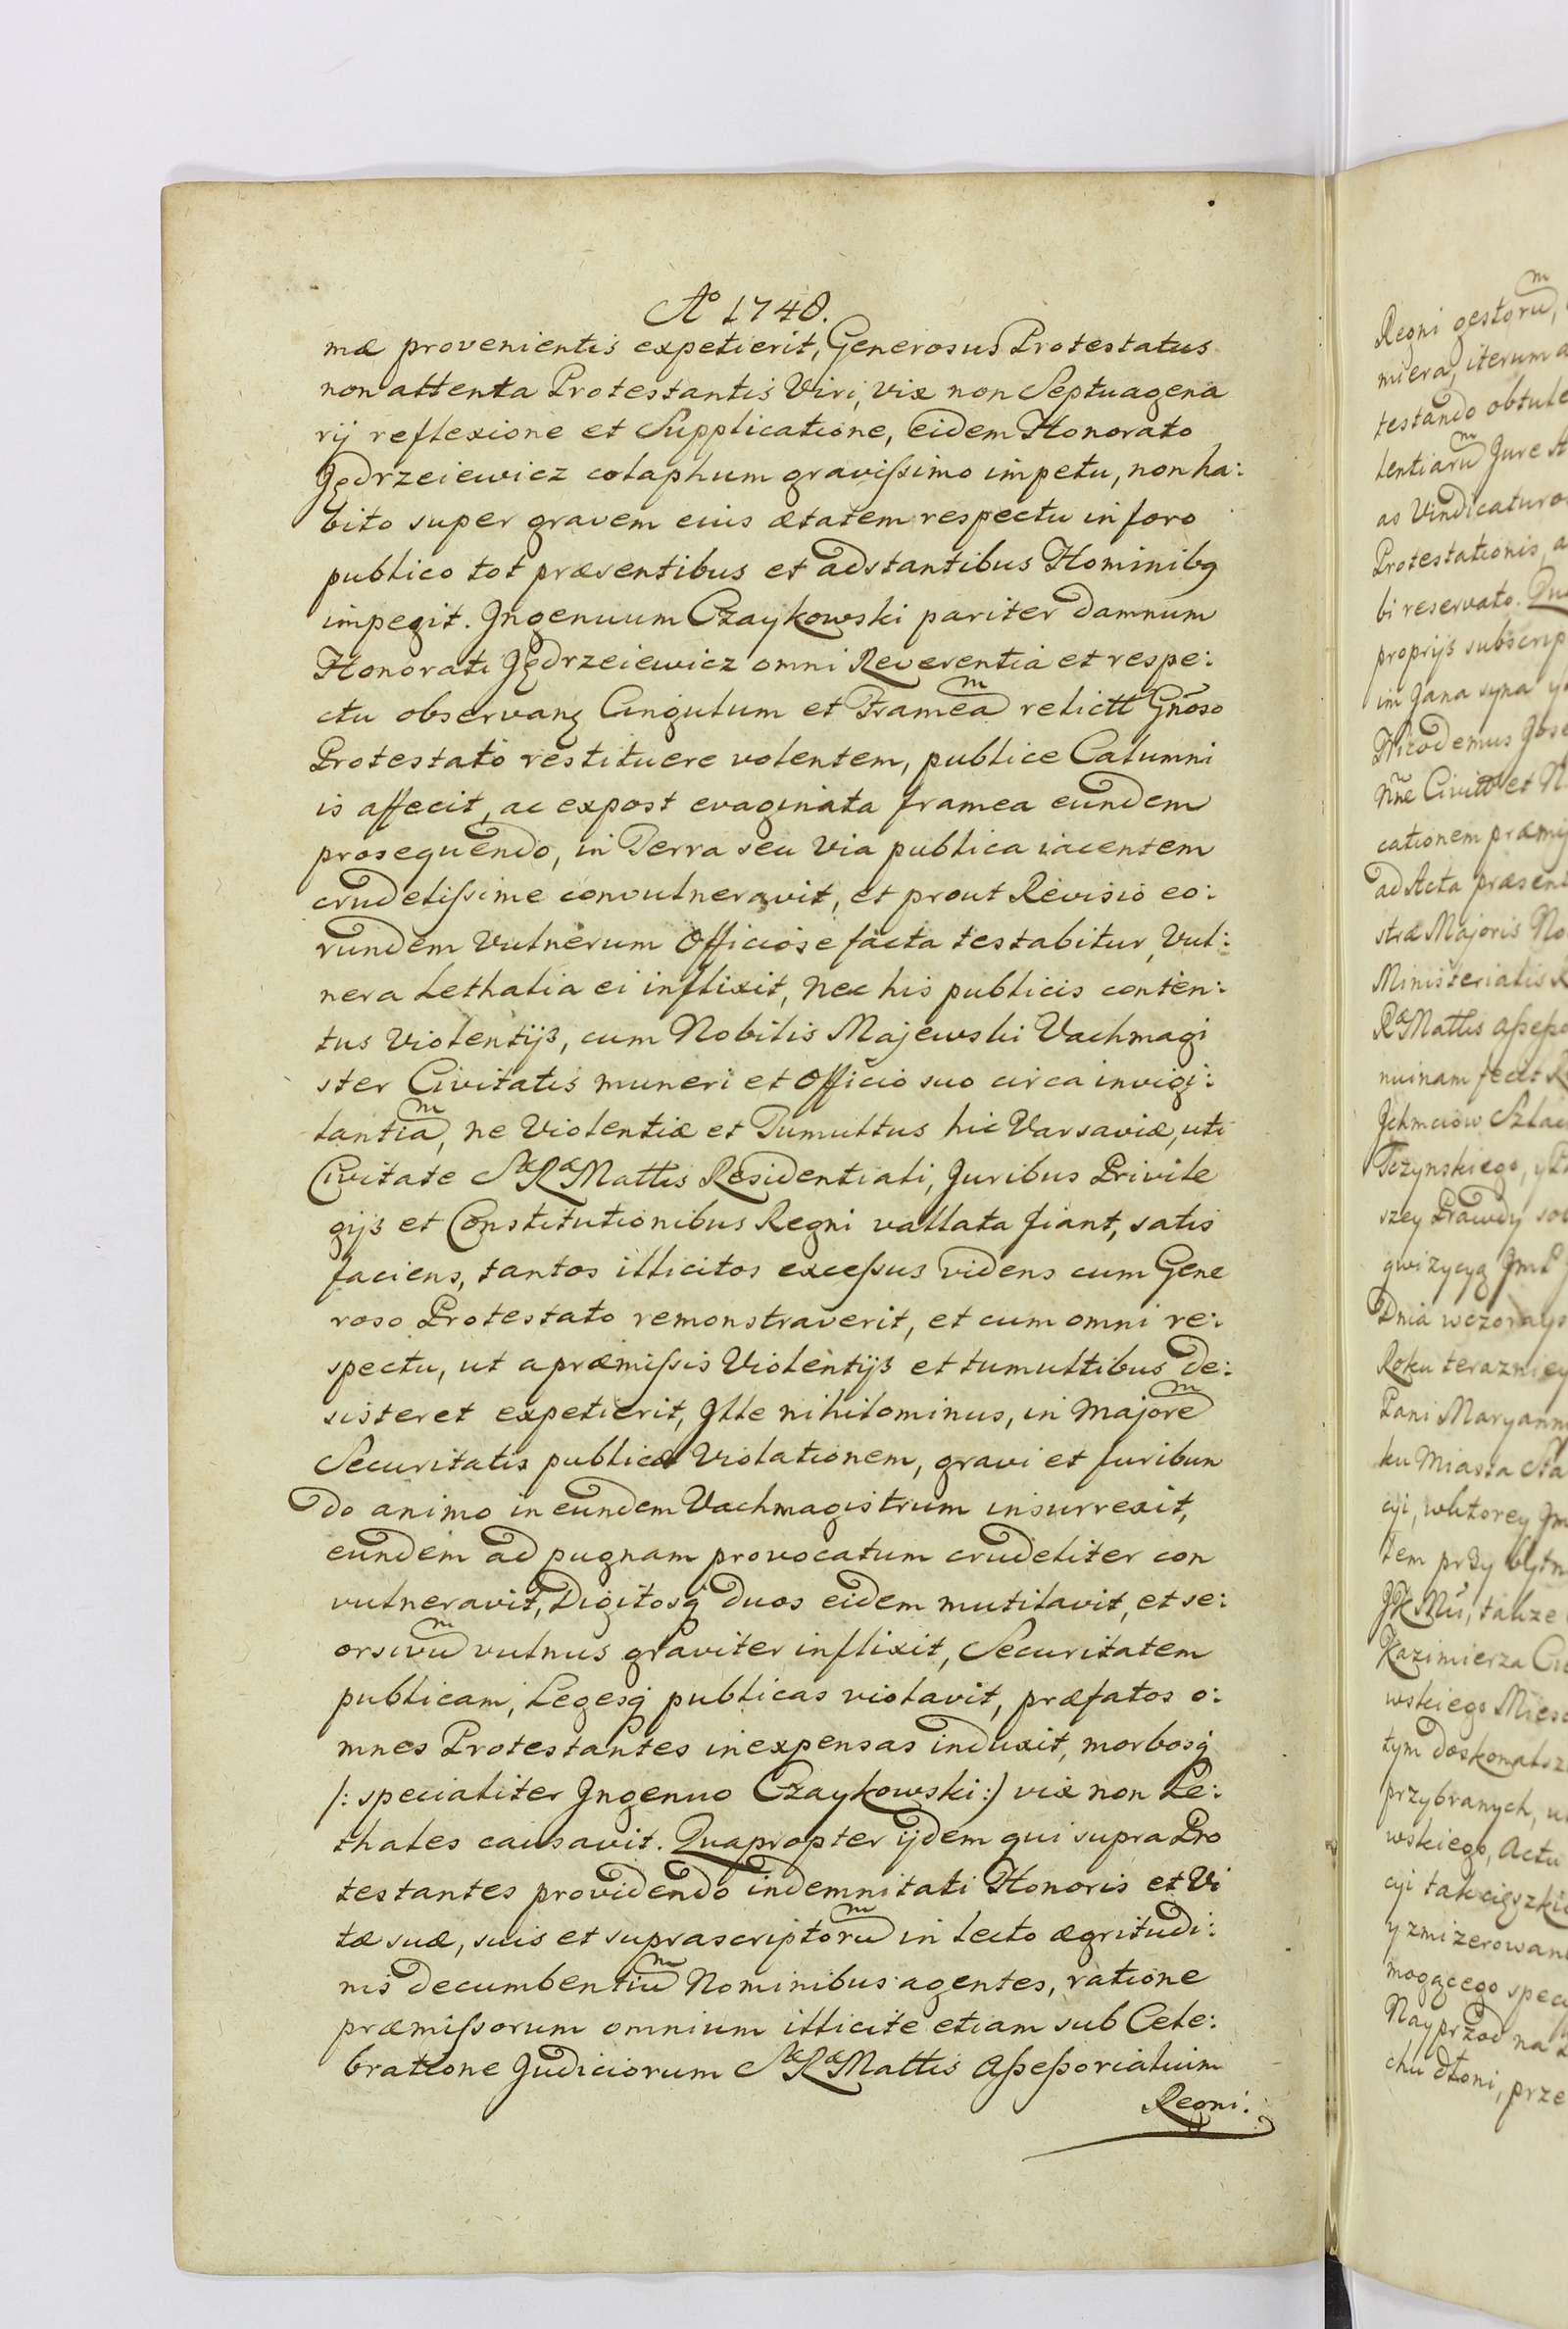 Aº 1748.
mæ provenientis expetierit, Generosus Protestatus
non attenta Protestantis Viri, vix non Septuagena
rij reflexione et Supplicatione, eidem Honorato
Jędrzeiewicz colaphum gravissimo impetu, non ha:
bito super gravem eius ætatem respectu in foro
publico tot præsentibus et adstantibus Hominibꝫ
impegit. Jngenuum Czaykowski pariter damnum
Honorati Jędrzeiewicz omni Reverentia et respe:
ctu observanꝫ Cingulum et Frameam̃ relictt Gñoso
Protestato restituere volentem, publice Calumni
is affecit, ac expost evaginata framea eundem
prosequendo, in Terra seu via publica iacentem
crudelissime convulneravit, et prout Revisio eo:
rundem Vulnerum Officiose facta testabitur, Vul:
nera Lethalia ei inflixit, nec his publicis conten:
tus Violentijs, cum Nobilis Majewski Vachmagi
ster Civitatis muneri et Officio suo circa invigi:
lantiam̃, ne Violentiæ et Tumultus hic Varsaviæ, uti
Civitate Sæ Ræ Mattis Residentiali, Juribus Privile
gijs et Constitutionibus Regni vallata fiant, satis
faciens, tantos illicitos excessus videns cum Gene
roso Protestato remonstraverit, et cum omni re:
spectu, ut a præmissis Violentijs et tumultibus de:
sisteret expetierit, Jlle nihilominus, in majorem̃
Securitatis publicæ Violationem, gravi et furibun
do animo in eundem Vachmagistrum insurrexit,
eundem ad pugnam provocatum crudeliter con
vulneravit, Digitosq̃ duos eidem mutilavit, et se:
orsivum̃ vulnus graviter inflixit, Securitatem
publicam, Legesq̃ publicas violavit, præfatos o:
mnes Protestantes in expensas induxit, morbosq̃
/: specialiter Jngenuo Czaykowski :/ vix non Le:
thales causavit. Quapropter ijdem qui supra Pro
testantes providendo indemnitati Honoris et Vi
tæ suæ, suis et suprascriptorum̃ in lecto ægritudi:
nis decumbentium̃ Nominibus agentes, ratione
præmissorum omnium illicite etiam sub Cele:
bratione Judiciorum Sæ Ræ Mattis Assessorialium
Regni:
Regni gestorum̃,
miera, iterum
testando obtule
lentiarum̃ Jure
as Vindicaturo
Protestationis
bi reservato.
proprijs subscrip
im Jana syna
Nicodemus
Nñe Civitt et
cationem præmis
ad Acta præsen
stræ Majoris No
Ministerialis
Ræ Mattis Assesso
nuinam fecit
Jchmciow
szey Prawdy
gwizycyą Jmć
Dnia wczorays
Roku terazniey
Pani Maryann
ku Miasta
cyi, wktorey
tem przy
JK Mći, także
Kazimierza
wskiego
tym doskonalsz
przybranych,
wskiego, Actu
cyi tak cięszkie
y zmizerowan
mogącego
Nayprzod na
chu dłoni, prze